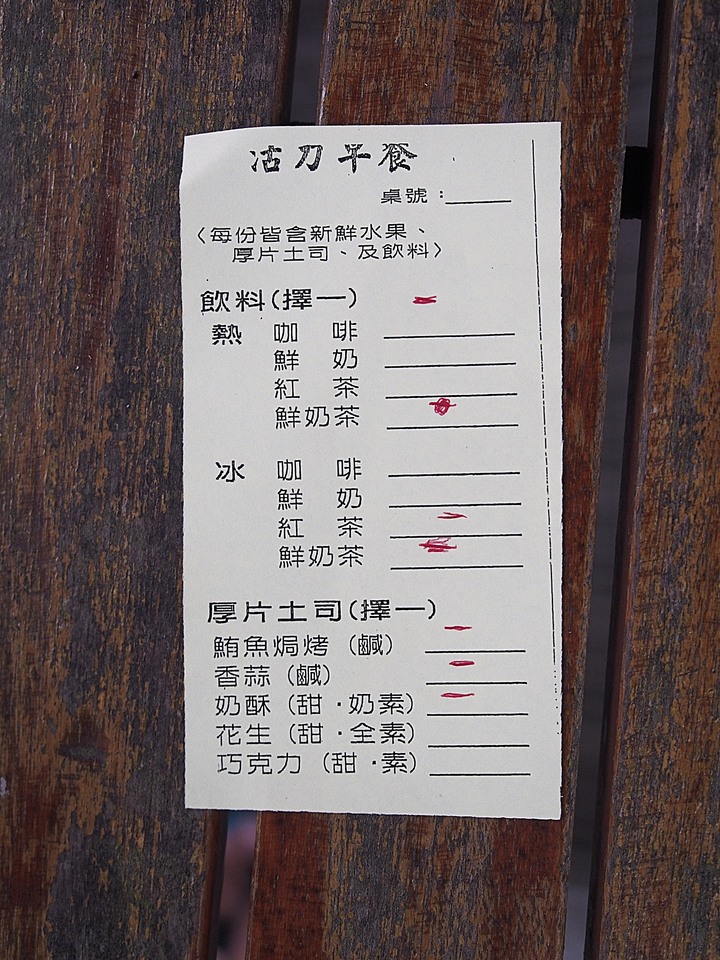 活力早餐
桌號：
〈每份皆含新鮮水果、
厚片土司、及飲料〉
飲料(擇一)
熱 咖啡
鮮奶
紅茶
鮮奶茶
冰 咖啡
鮮奶
紅茶
鮮奶茶
厚片土司(擇一)
鮪魚焗烤（鹹）
香蒜（鹹）
奶酥（甜·奶素）
花生（甜·全素）
巧克力（甜·素）